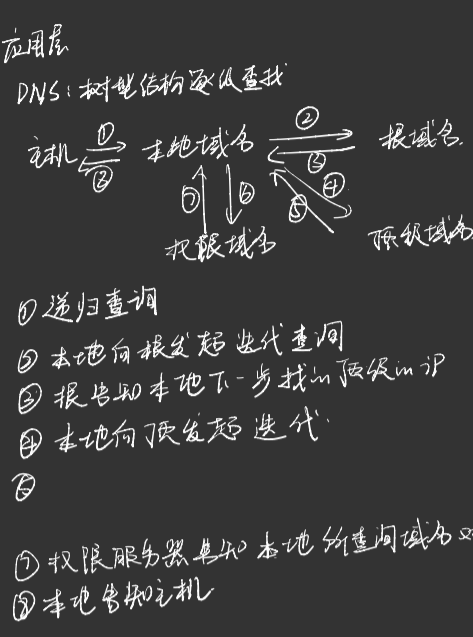 应用层
DNS：树型结构逐级查找
① ②
主机 本地域名 根域名
⑧ ③ ④
⑦ ⑥ ⑤
权限域名 顶级域名
① 递归查询
② 本地向根发起迭代查询
③ 根告知本地下一步找的顶级的IP
④ 本地向顶发起迭代.
⑤
⑦ 权限服务器告知本地所查询域名
⑧ 本地告知主机